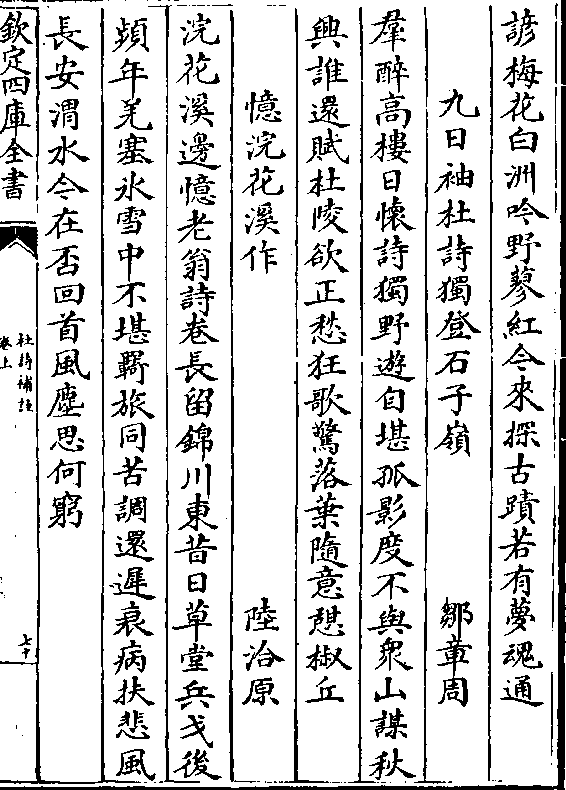 諺梅花白洲吟野蓼紅今來探古蹟若有夢魂通
九日袖杜詩獨登石子嶺 鄒章周
羣醉高樓日懷詩獨野遊自堪孤影度不與衆山謀秋
興誰還賦杜陵欲正愁狂歌驚落葉隨意憇椒丘
憶浣花溪作 陸洽原
浣花溪邊憶老翁詩卷長留錦川東昔日草堂兵戈後
頻年羌塞氷雪中不堪覉旅同苦調還遲衰病扶悲風
長安渭水今在否回首風塵思何窮
欽定四庫全書
杜詩補註
卷上
七十